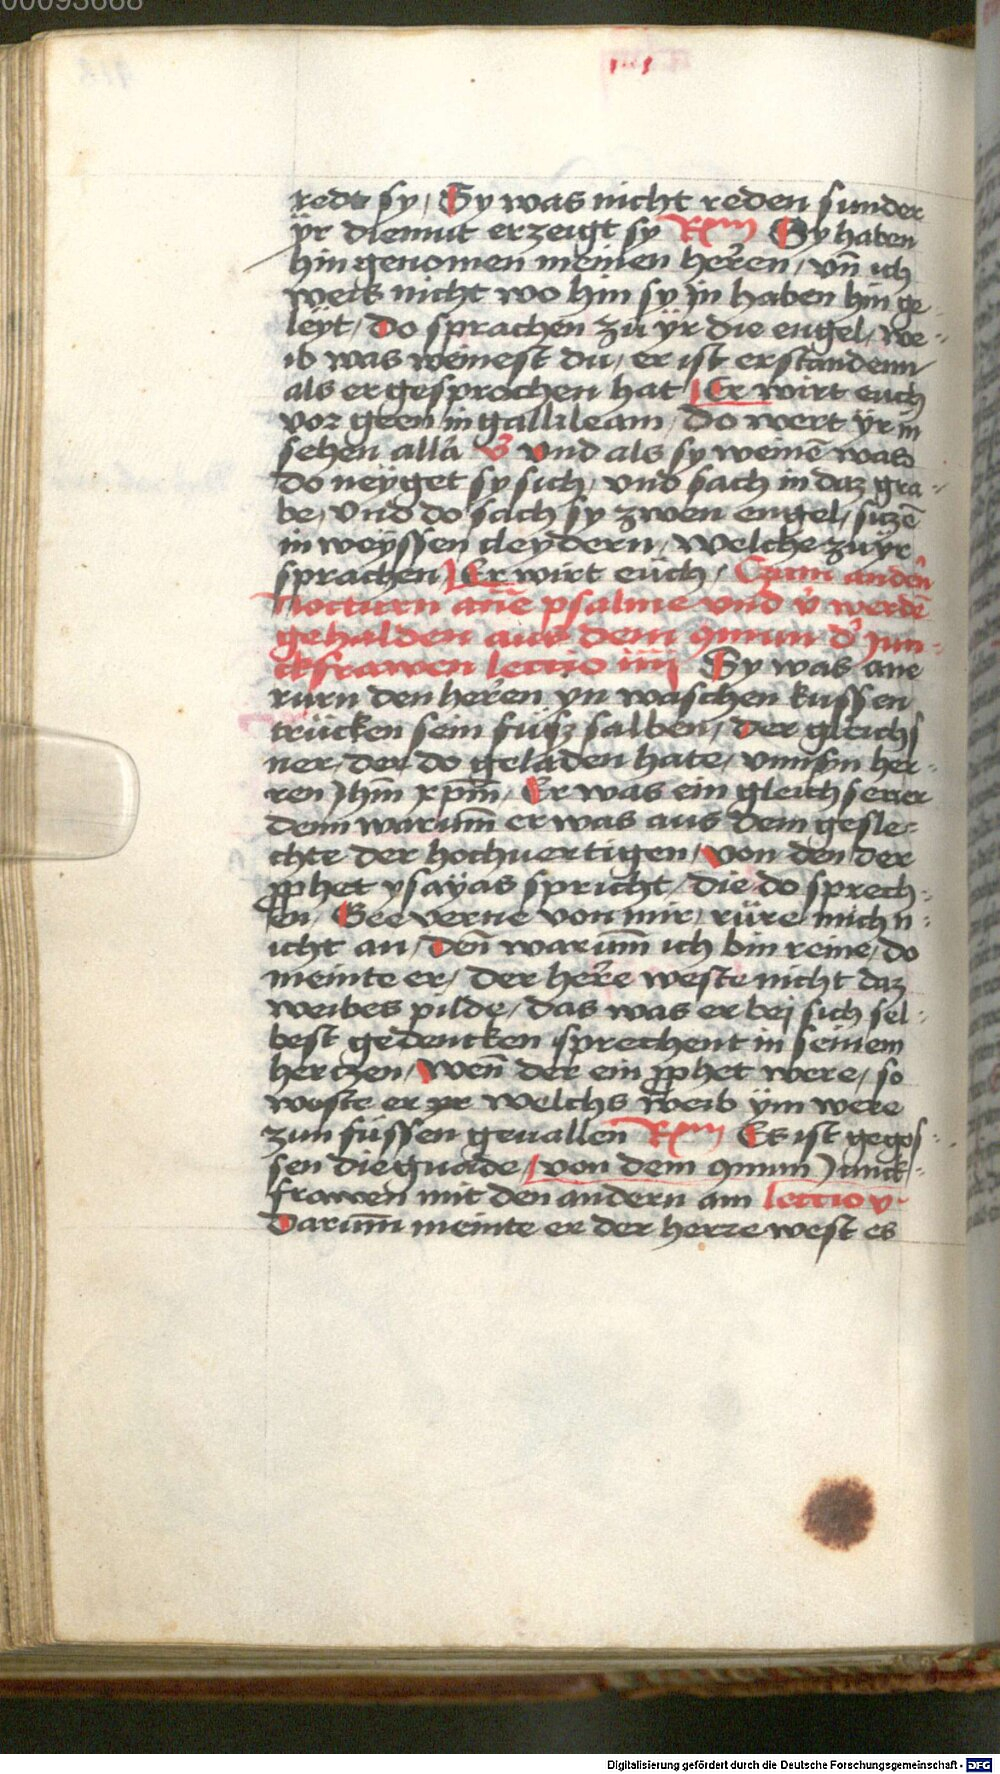 00093668
redt sy / Sy was nicht reden sunder
ÿr diemut erzeigt sy Rm Sy haben
hin genomen meinen heren / vn̄ ich
weis nicht wo hin sy jn haben hin ge
leÿt / Do sprachen zu ÿr die engel / we-
ib was weinest du / er ist erstandenn /
als er gesprochen hat / Er wirt euch
vor geen in gallileam / do wert ÿr in
sehen alla v̓ Vnd als sy weinē was
do neÿget sy sich / vnd sach in daz gra-
be / Vnd do sach sy zwen engel / siczē
in weÿssen cleydern / Welche zu ÿr
sprachen / Er wirt euch / Czum andern̄
Nocturn ane psalme vnd v̓ werdē
gehalden aus dem 9mun d̓ jun-
ckfrawen lectio iiij Sy was ane
rurn den heren yn waschen kussen
trücken sein fusz salben / der gleichs
ner / der do geladen hate / vnnsrn her-
ren Jhm̄ xpm̄ / Er was ein gleichsener
denn warum̄ er was aus dem gesle-
chte der hochuertigen / von den der
pphet ysaÿas spricht / die do sprech-
en / Gee verne von mir / rüre mich n-
icht an / Den̄ warum̄ ich bin reine / do
meinte er / der here weste nicht daz
weibes pilde / das was er bej sich sel-
best gedencken sprechent in seinem
hertzen / Wen̄ der ein pphet were / so
weste er welchs weib ÿm were
zun füssen geuallen Rm Es ist gegos-
sen die gnade / von dem 9mun Junck-
frawen mit den andern am lectio v
Darum̄ meinte er der herre west es
Digitalisierung gefördert durch die Deutsche Forschungsgemeinschaft - DFG